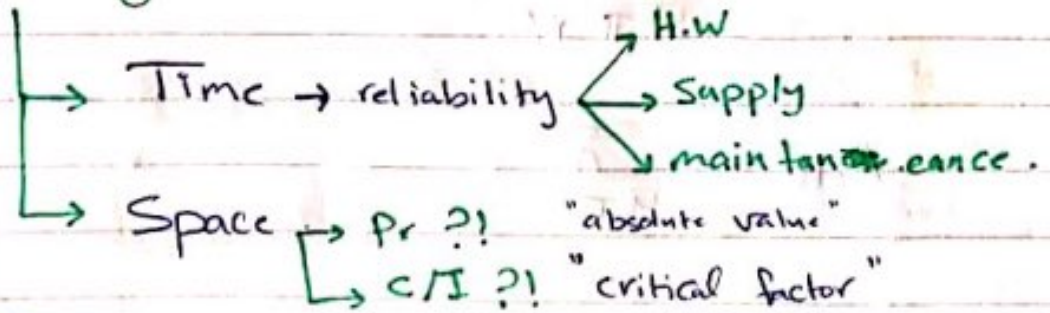 H.W
Time → reliability → Supply
maintan eance.
Space → Pr ?! "absolute value"
→ C/I ?! "critical factor"